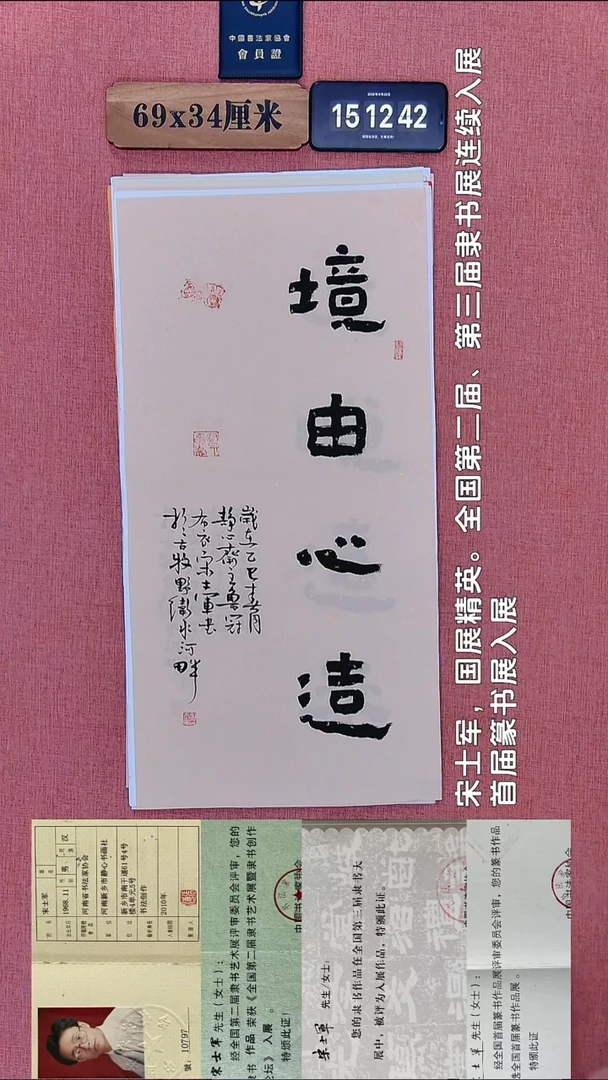 中國書法家協會
會員證
69x34厘米
15 12 42
境由心造
歲在乙巳春月
靜心齋主魯冠
布衣宋士軍書
於古牧野衛水河畔
宋士军，国展精英。全国第二届、第三届隶书展连续入展
首届篆书展入展
宋士军
1968.11
男
汉
河南省书法家协会
河南新乡市静心书画社
新乡市南干道61号4号
楼4单元5号
书法创作
2010年
號：10797
宋士军 先生（女士）：
经全国第二届隶书艺术展评审委员会评审，您的
隶书 作品 荣获《全国第二届隶书艺术展暨隶书创作
论坛》入展 。
特颁此证！
宋士军 先生/女士：
您的隶书作品在全国第三届隶书大
展中，被评为入展作品，特颁此证。
士军 先生（女士）：
经全国首届篆书作品展评审委员会评审，您的篆书作品
全国首届篆书作品展。
特颁此证